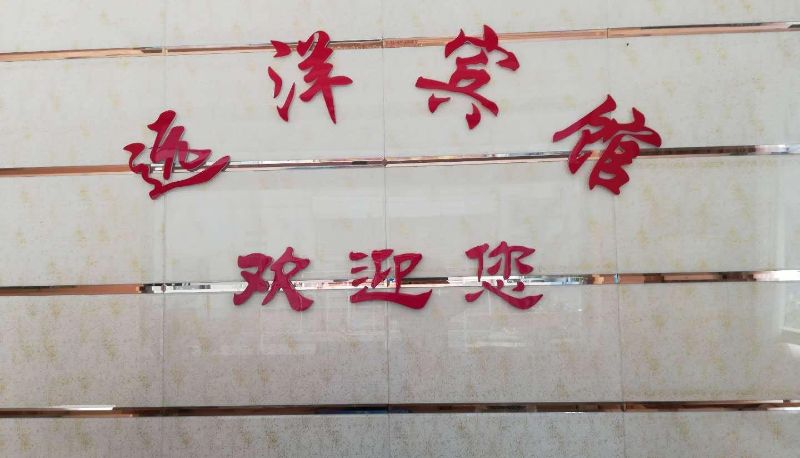 远洋宾馆
欢迎您